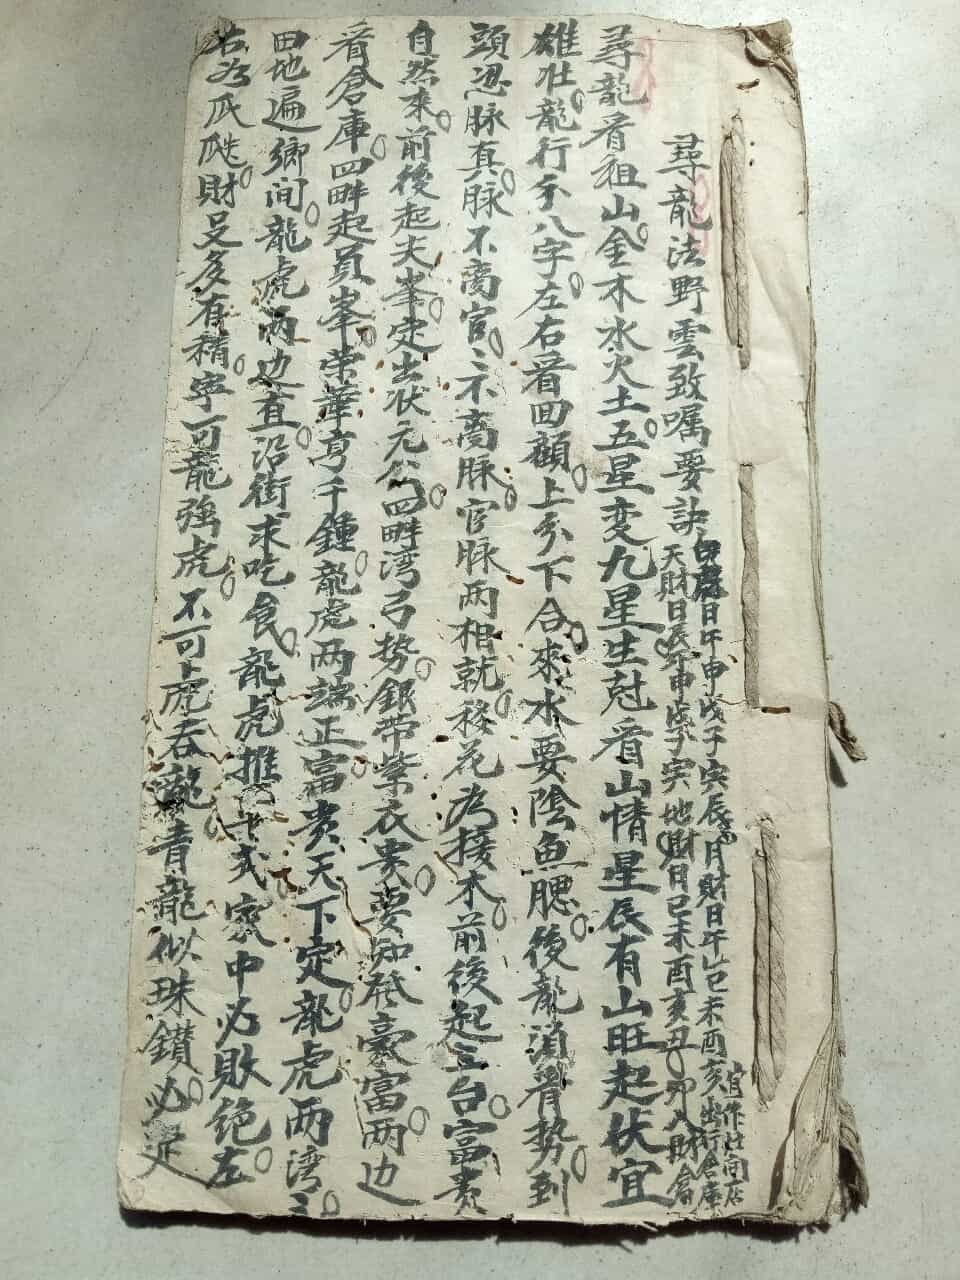 尋龍法野雲致嘱要訣
日午申戌子寅辰 月財日午 巳未酉亥出行倉庫
天財日辰午申戌子寅 地財日巳未酉亥丑卯入財倉
宜作 開店
尋龍看祖山金木水火土五星变九星生尅看山情星辰有山旺起伏宜
雄壮龍行分八字左右看回顧上分下合來水要陰魚腮後龍須看勢到
頭忍脉真脉不离官〻不离脉官脉两相就移花为接木前後起三台富贵
自然來前後起夫峯定出状元公四畔湾弓势銀带紫衣贵要知發豪富两边
看倉庫四畔起員峯荣華亨千鍾龍虎两端正富贵天下定龍虎两湾〻
田地遍鄉间龍虎两边直沿街求吃食龍虎推 式家中必敗絶左
右为瓜瓞財足多有積寧可龍強虎不可虎吞龍青龍似珠鑽必定